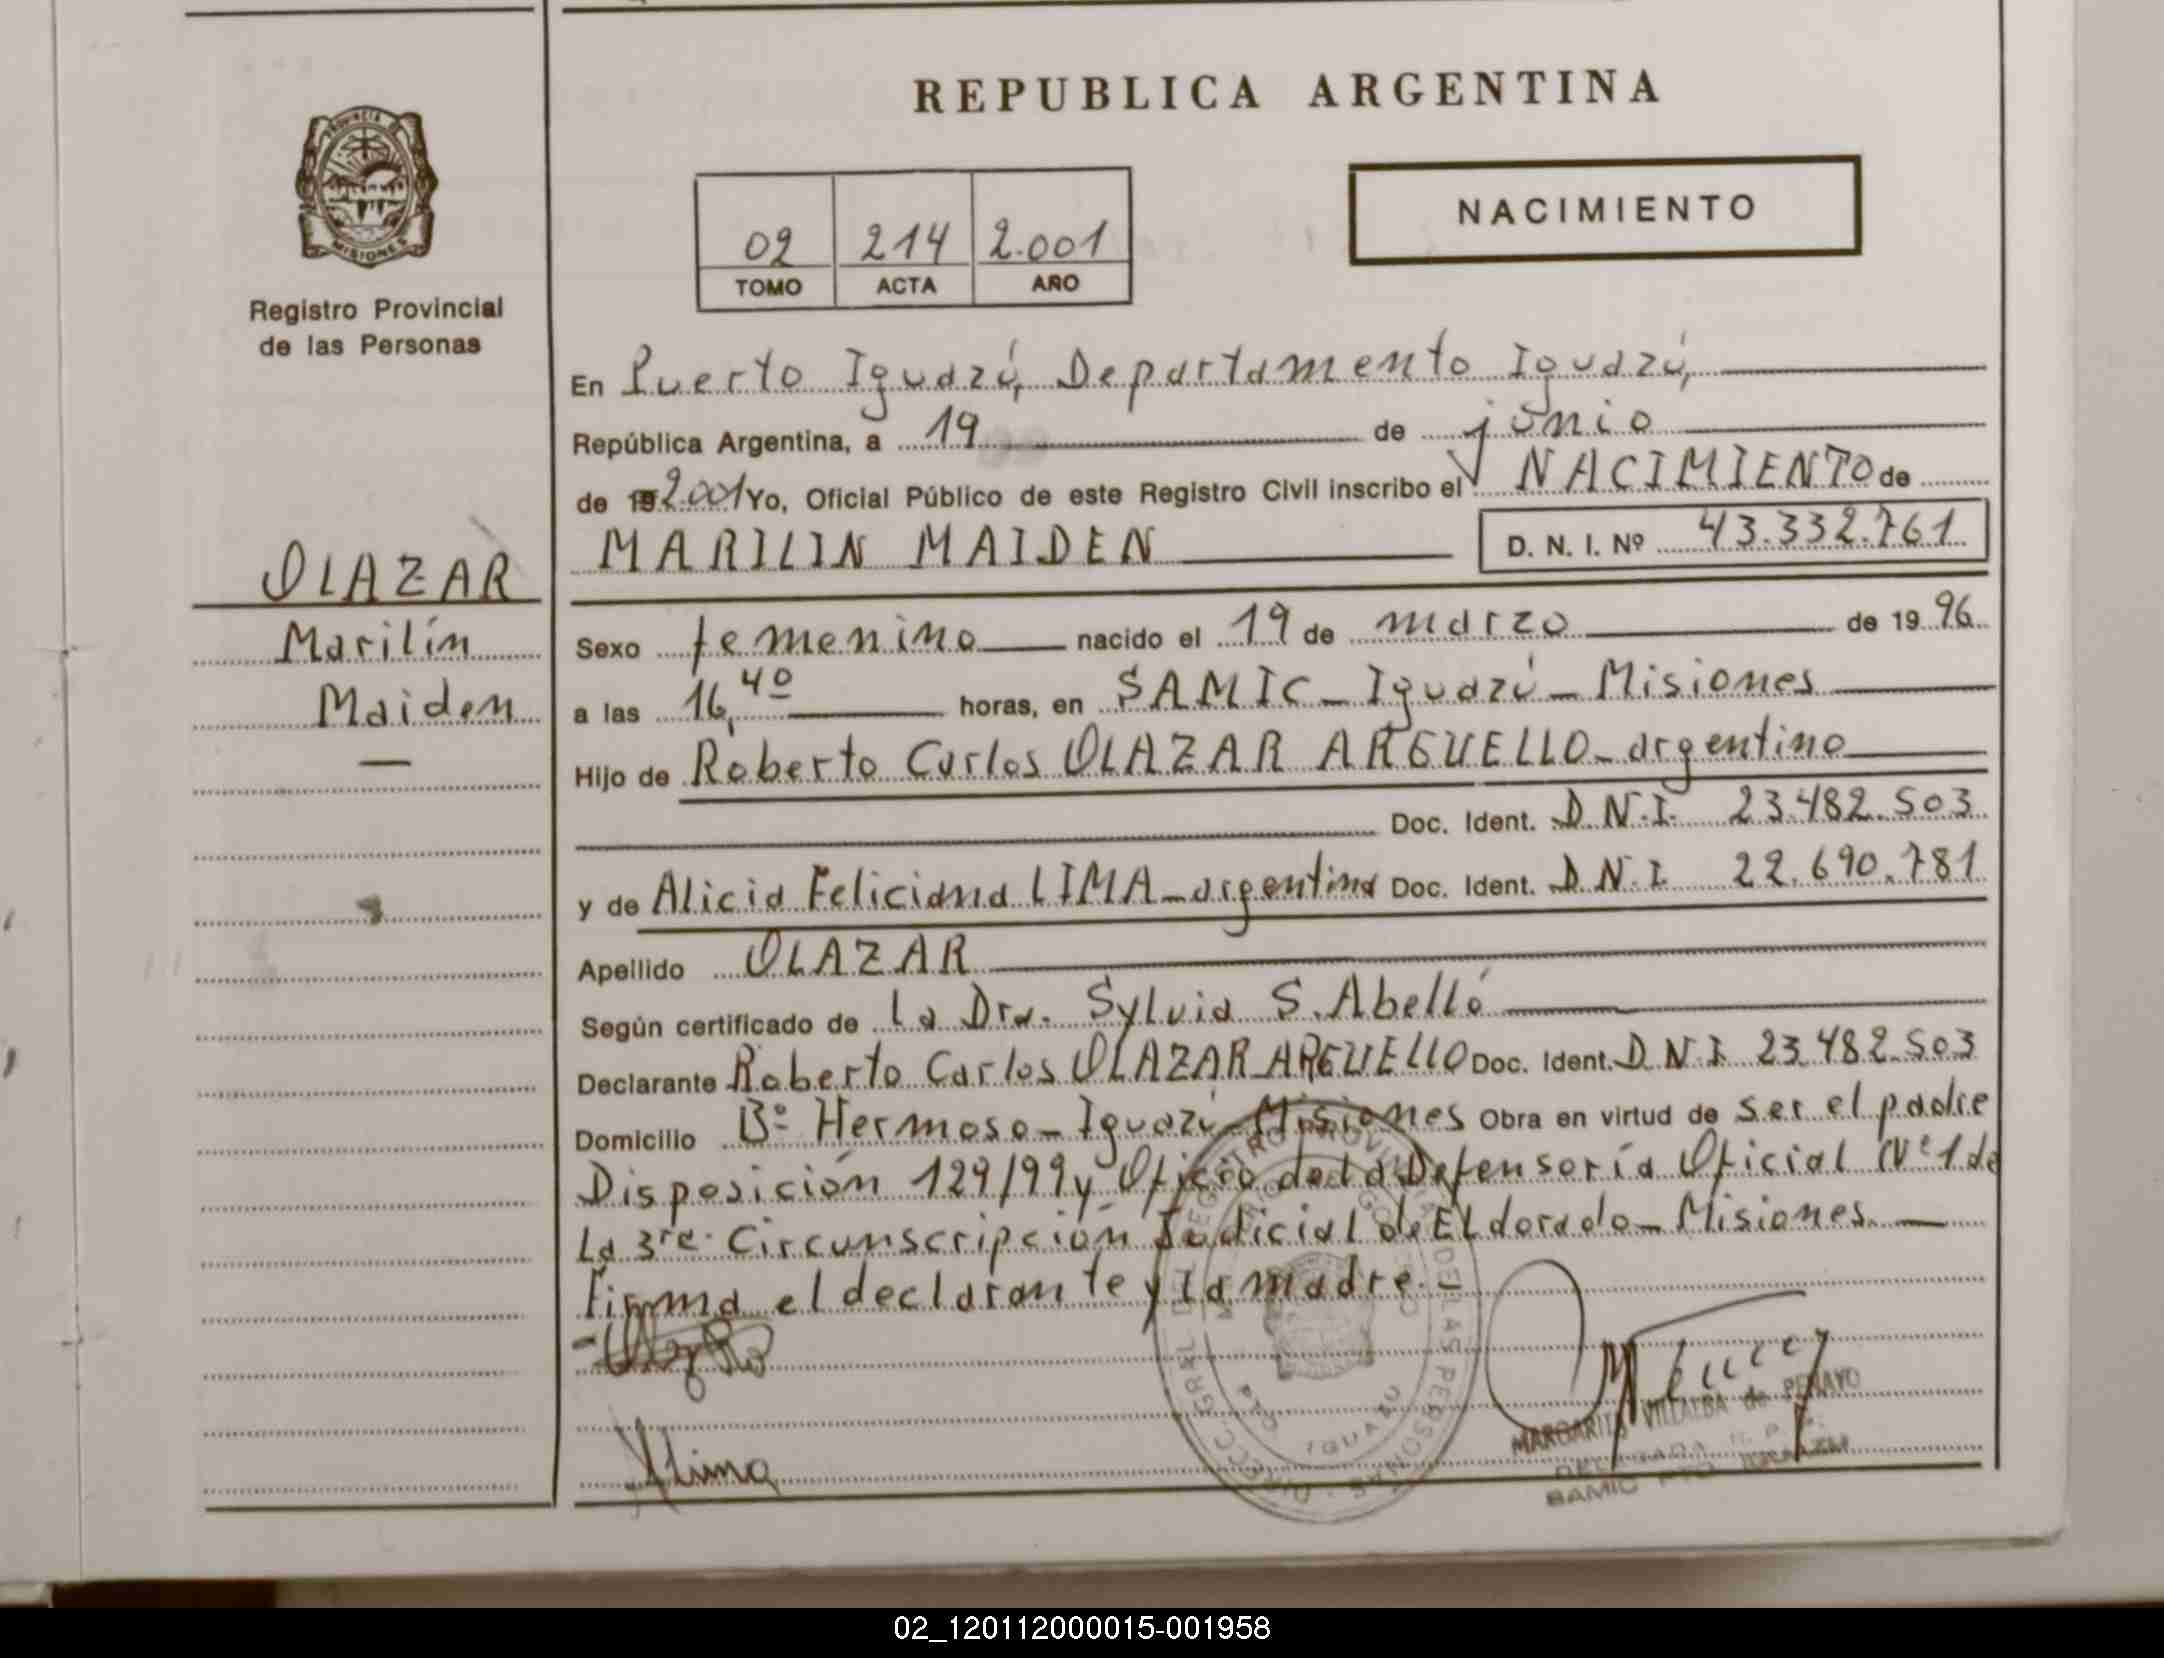 REPUBLICA ARGENTINA
PROVINCIA DE
MISIONES
Registro Provincial
de las Personas
NACIMIENTO
02 214 2.001
TOMO ACTA AÑO
En Puerto Iguazú, Departamento Iguazú,
República Argentina, a 19 de junio
de 19 2.001 Yo, Oficial Público de este Registro Civil inscribo el NACIMIENTO de
MARILIN MAIDEN D. N. I. Nº 43.332.761
OLAZAR
Marilín
Maiden
Sexo femenino nacido el 19 de marzo de 19 96
a las 16,40 horas, en SAMIC - Iguazú - Misiones
Hijo de Roberto Carlos OLAZAR ARGUELLO - argentino
Doc. Ident. D.N.I. 23.482.503
y de Alicia Feliciana LIMA - argentina Doc. Ident. D.N.I. 22.690.781
Apellido OLAZAR
Según certificado de la Dra. Sylvia S. Abelló
Declarante Roberto Carlos OLAZAR ARGUELLO Doc. Ident. D.N.I. 23.482.503
Domicilio Bº Hermoso - Iguazú - Misiones Obra en virtud de ser el padre
Disposición 129/99 y Oficio de la Defensoría Oficial Nº 1 de
La 3ra. Circunscripción Judicial de ELdorado - Misiones. -
Firma el declarante y la madre. -
ALima
MARGARITA VILLALBA de PENAYO
DELEGADA R. P. P.
SAMIC PTO. IGUAZU
PTO. IGUAZU
02_120112000015-001958